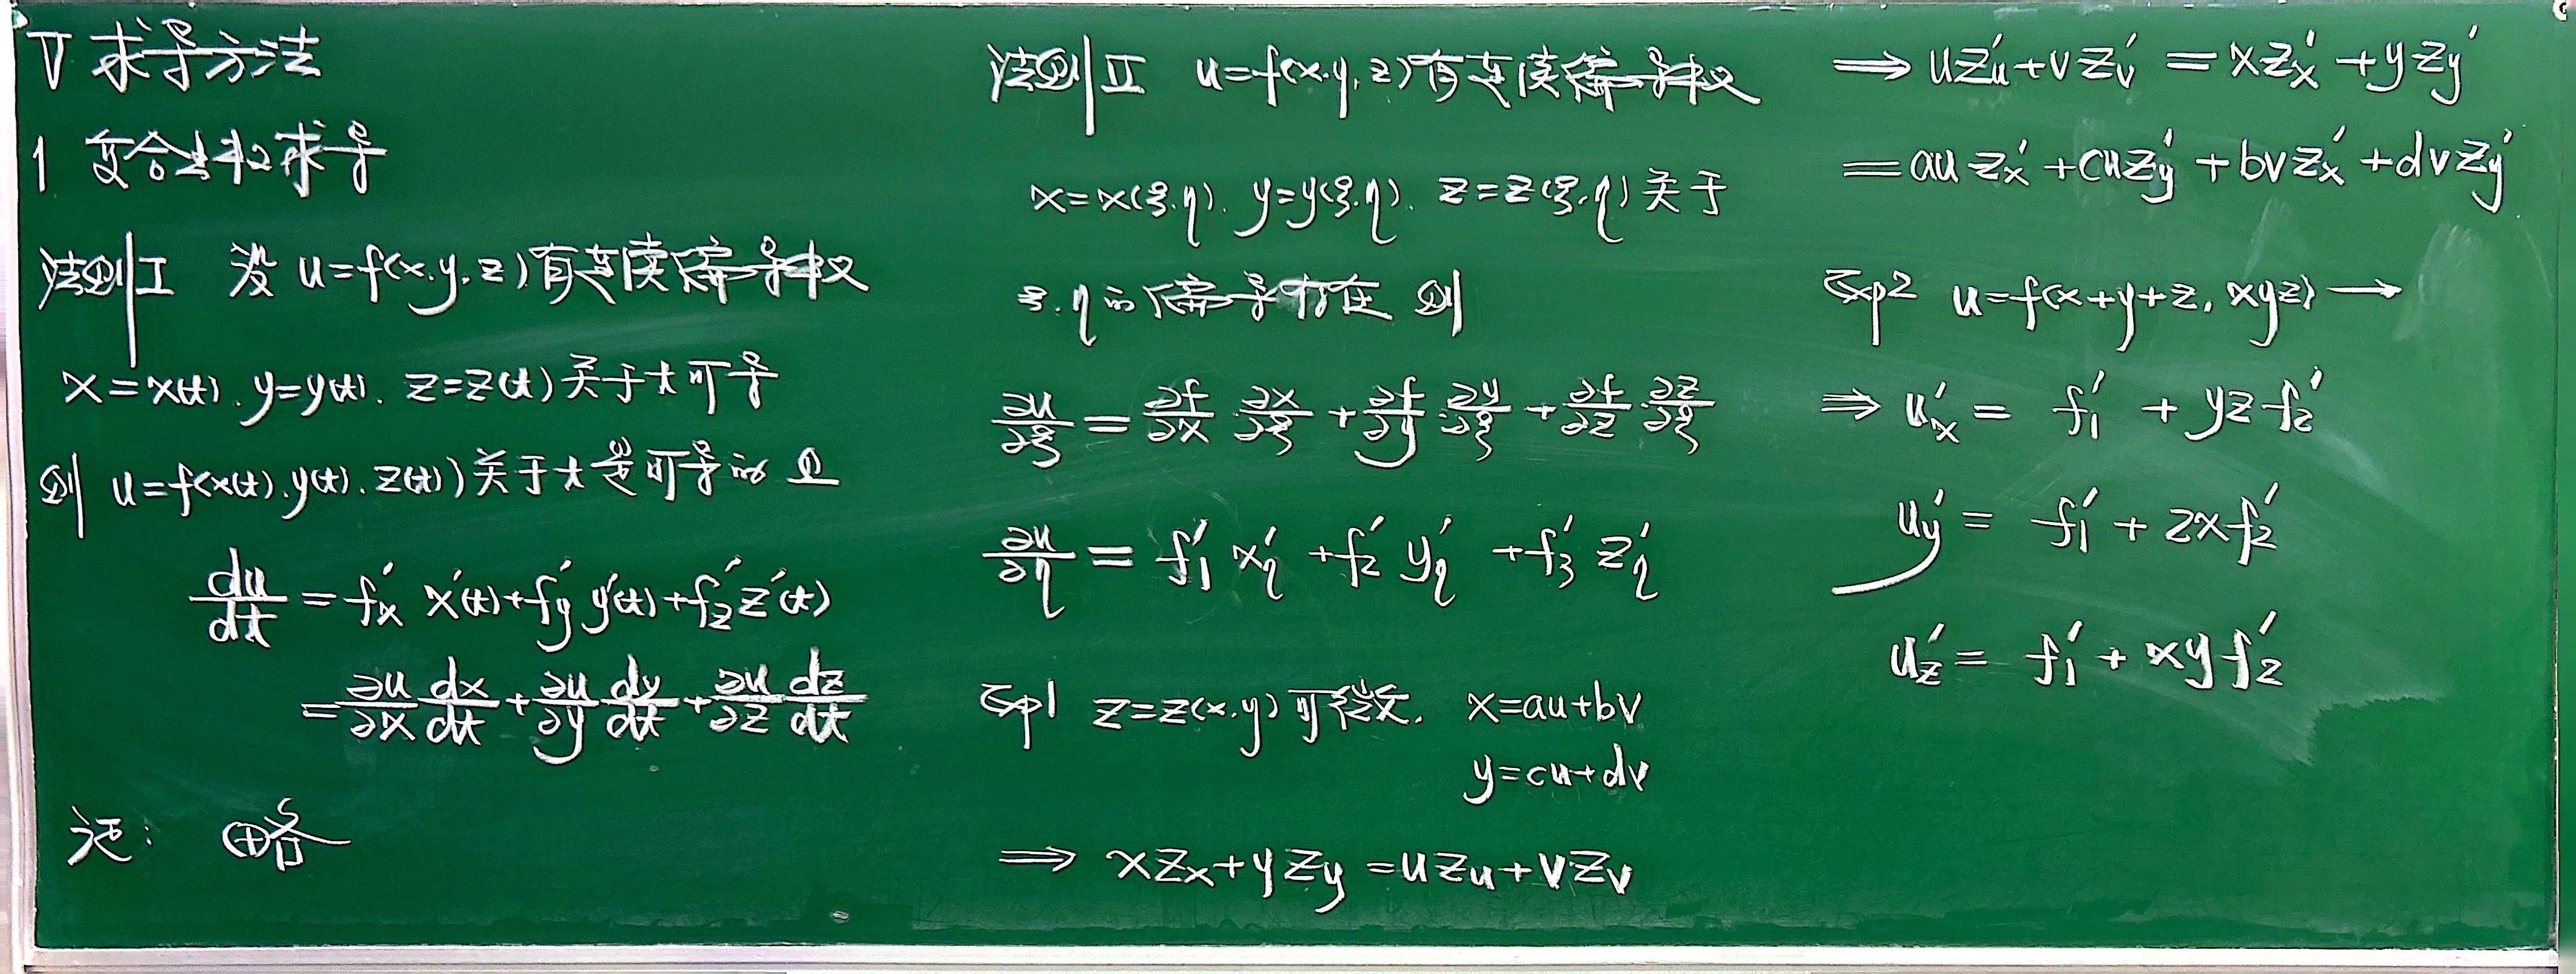 V 求导方法
1 复合函数求导
法则I 设 u=f(x,y,z)有连续偏导数
x=x(t), y=y(t), z=z(t)关于t可导
则 u=f(x(t),y(t),z(t))关于t是可导的且
du/dt = f'x x'(t)+f'y y'(t)+f'z z'(t)
= ∂u/∂x dx/dt + ∂u/∂y dy/dt + ∂u/∂z dz/dt
证: 略
法则II u=f(x,y,z)有连续偏导数
x=x(ξ,η), y=y(ξ,η), z=z(ξ,η)关于
ξ,η的偏导存在 则
∂u/∂ξ = ∂f/∂x ∂x/∂ξ + ∂f/∂y ∂y/∂ξ + ∂f/∂z ∂z/∂ξ
∂u/∂η = f'1 x'η + f'2 y'η + f'3 z'η
Exp1 z=z(x,y)可微, x=au+bv
y=cu+dv
⟹ xZx+yZy=uZu+vZv
⟹ uZ'u+vZ'v = xZ'x+yZ'y
= auZ'x+cuZ'y+bvZ'x+dvZ'y
Exp2 u=f(x+y+z, xyz) →
⟹ u'x = f'1 + yz f'2
u'y = f'1 + zx f'2
u'z = f'1 + xy f'2